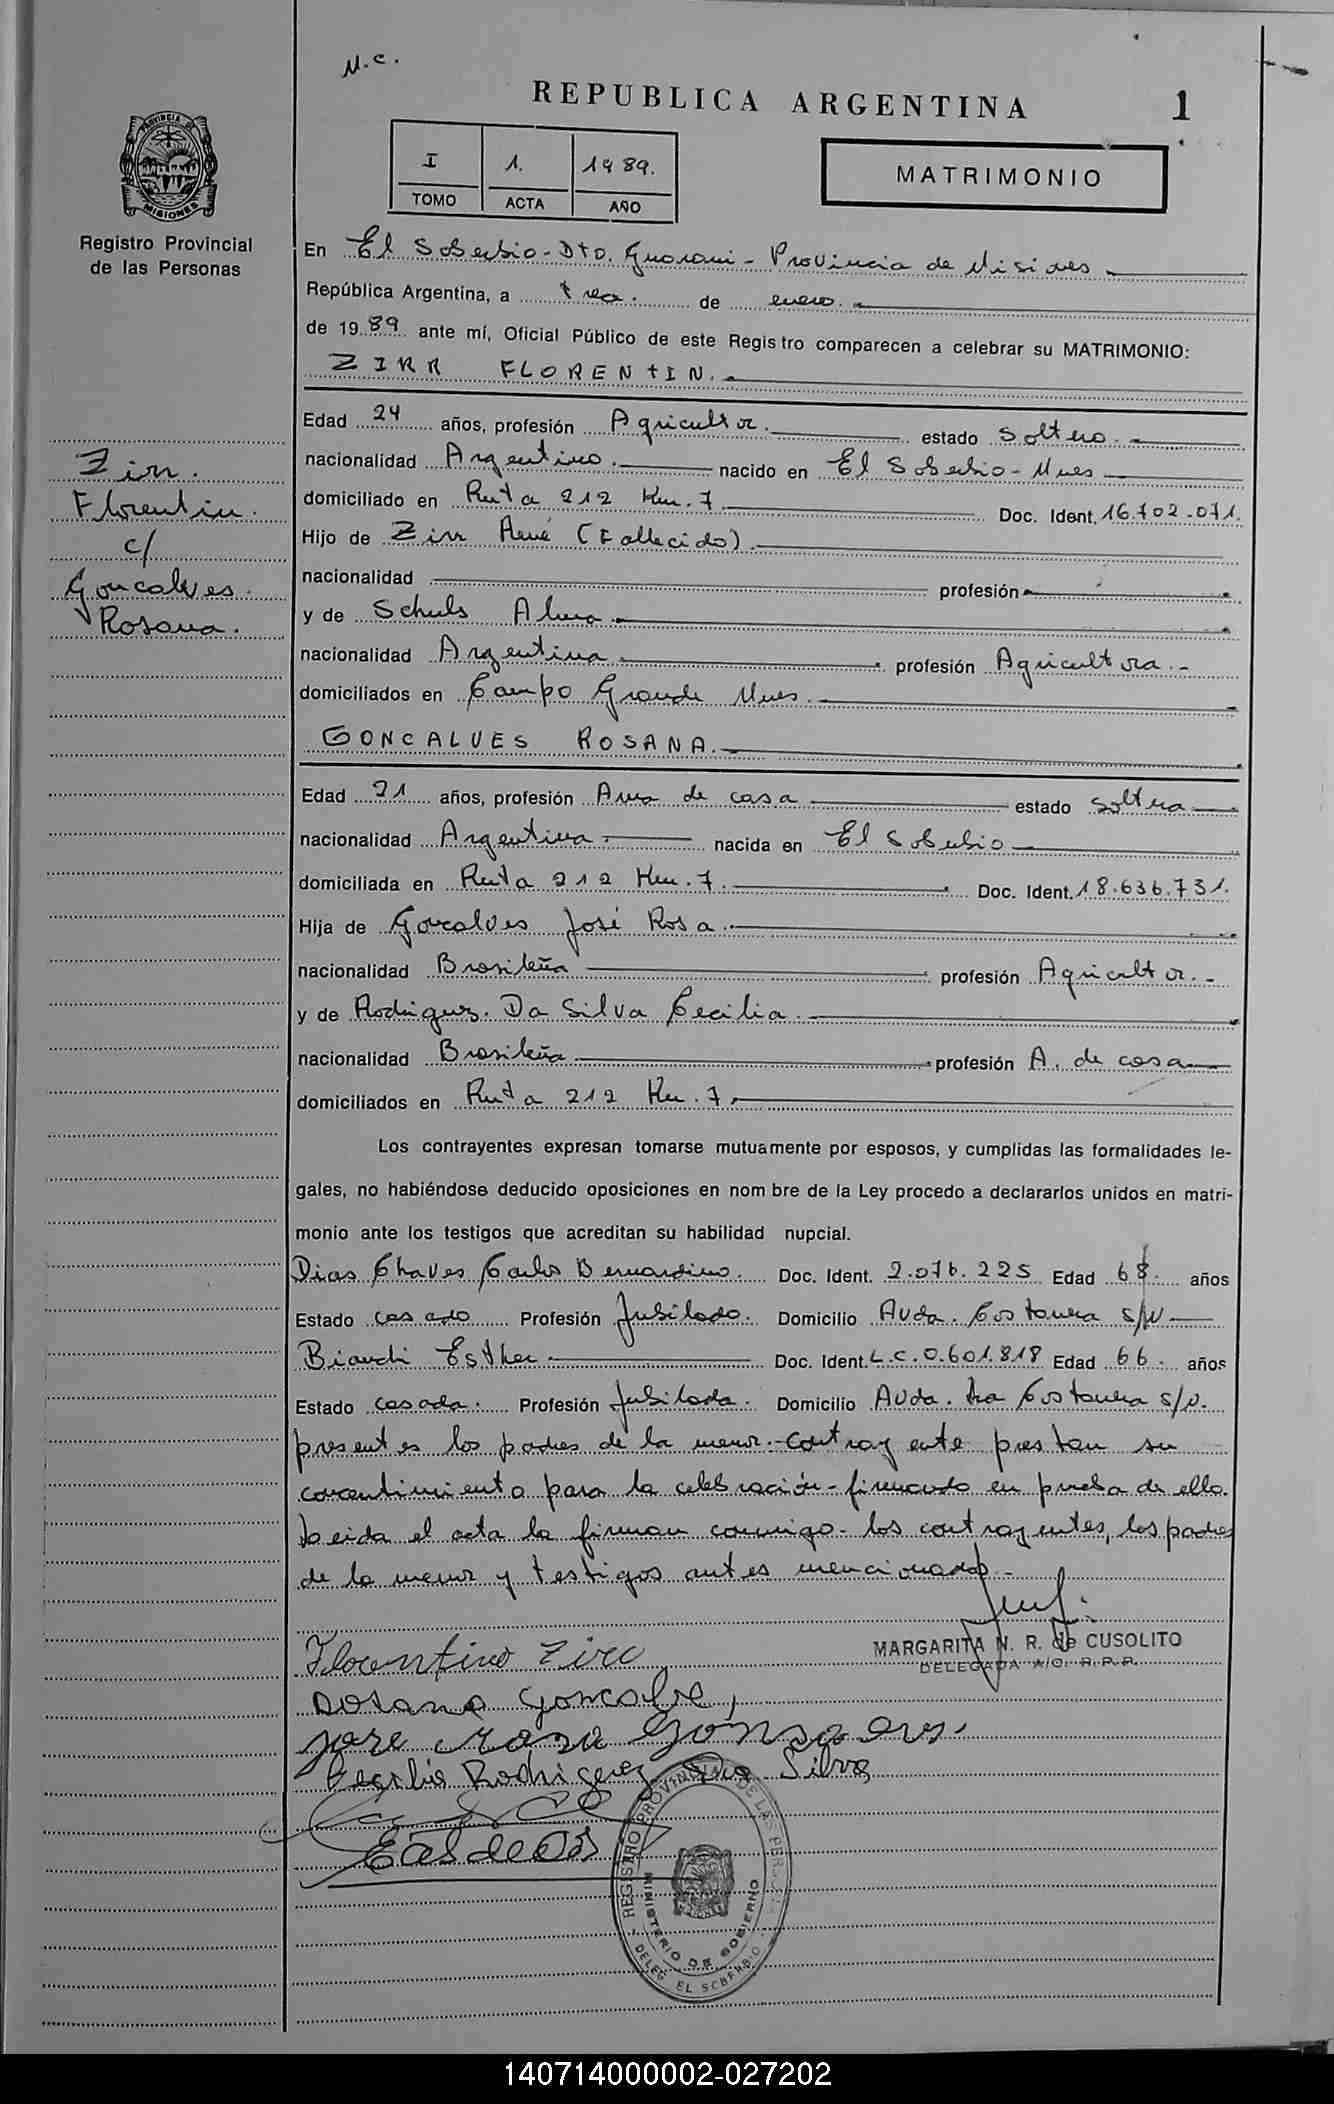 M.C.
REPUBLICA ARGENTINA 1
I 1. 1989.
TOMO ACTA AÑO
MATRIMONIO
PROVINCIA DE MISIONES
Registro Provincial
de las Personas
En El Soberbio - Dto. Guarani - Provincia de Misiones
República Argentina, a tres. de enero.
de 1989 ante mí, Oficial Público de este Registro comparecen a celebrar su MATRIMONIO:
ZIRR FLORENTIN.
Edad 24 años, profesión Agricultor. estado soltero.
nacionalidad Argentino. nacido en El Soberbio - Mnes
domiciliado en Ruta 212 Km. 7 Doc. Ident. 16.702.071.
Hijo de Zirr René (Fallecido)
nacionalidad profesión
y de Schuls Alma
nacionalidad Argentina profesión Agricultora.-
domiciliados en Campo Grande Mnes.
GONCALVES ROSANA.
Edad 21 años, profesión Ama de casa estado soltera
nacionalidad Argentina nacida en El Soberbio
domiciliada en Ruta 212 Km. 7. Doc. Ident. 18.636.731.
Hija de Goncalves José Rosa
nacionalidad Brasileña profesión Agricultor.-
y de Rodriguez. Da Silva Cecilia.
nacionalidad Brasileña profesión A. de casa
domiciliados en Ruta 212 Km. 7.
Zirr.
Florentin.
c/
Goncalves
Rosana.
Los contrayentes expresan tomarse mutuamente por esposos, y cumplidas las formalidades le-
gales, no habiéndose deducido oposiciones en nombre de la Ley procedo a declararlos unidos en matri-
monio ante los testigos que acreditan su habilidad nupcial.
Dias Chaves Carlos Bernardino. Doc. Ident. 2.076.225 Edad 68. años
Estado casado Profesión Jubilado. Domicilio Avda. Costanera s/N
Bianchi Esther Doc. Ident. L.C.0.601.818 Edad 66. años
Estado casada. Profesión Jubilada. Domicilio Avda. La Costanera s/N.
presentes los padres de la menor.-contrayente prestan su
concentimiento para la celebración - firmando en prueba de ello.
Leida el acta la firman conmigo - los contrayentes, los padres
de la menor y testigos antes mencionados.-
MARGARITA N. R. de CUSOLITO
DELEGADA A/C. R.P.P.
Florentino Zirr
Rosana Goncalve,
Cecilia Rodriguez Da Silva
REGISTRO PROVINCIAL DE LAS PERSONAS
MINISTERIO DE GOBIERNO
DELEG. EL SOBERBIO
140714000002-027202